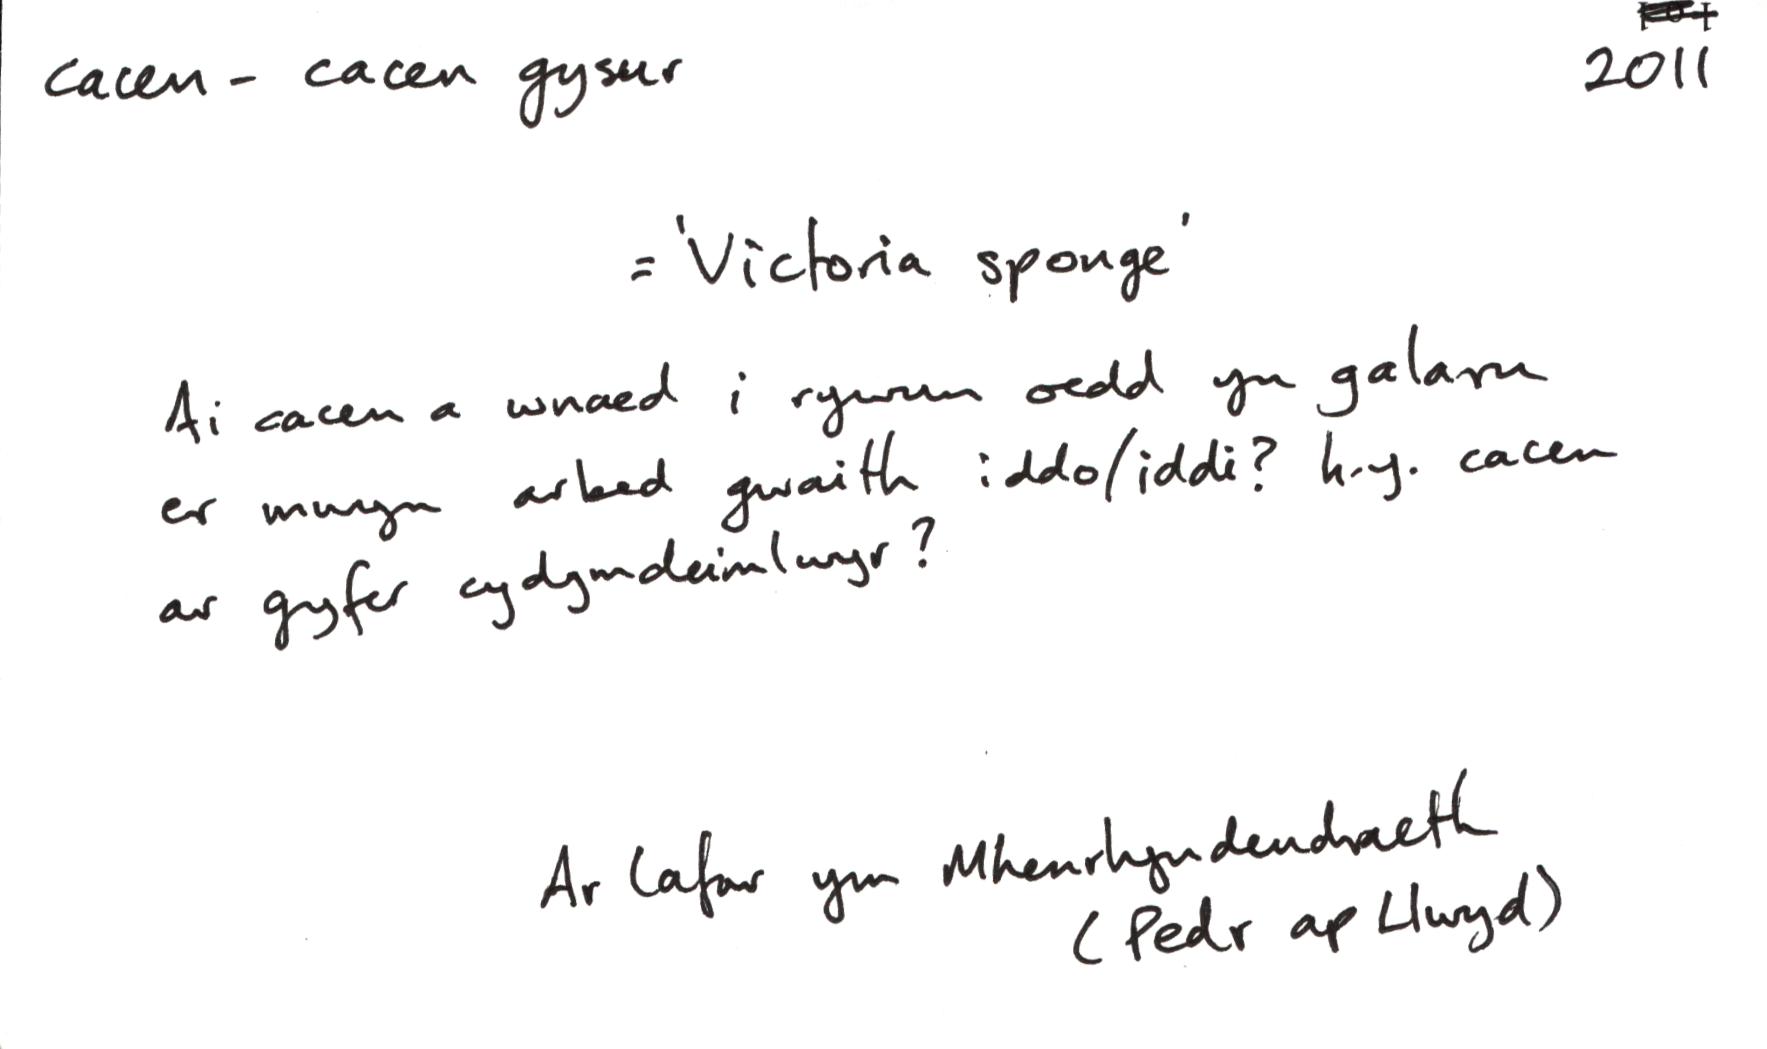 cacen - cacen gysur
2011
= 'Victoria sponge'
Ai cacen a wnaed i rywun oedd yn galaru
er mwyn arbed gwaith iddo/iddi? h.y. cacen
ar gyfer cydymdeimlwyr?
Ar lafar ym Mhenrhyndeudraeth
(Pedr ap Llwyd)